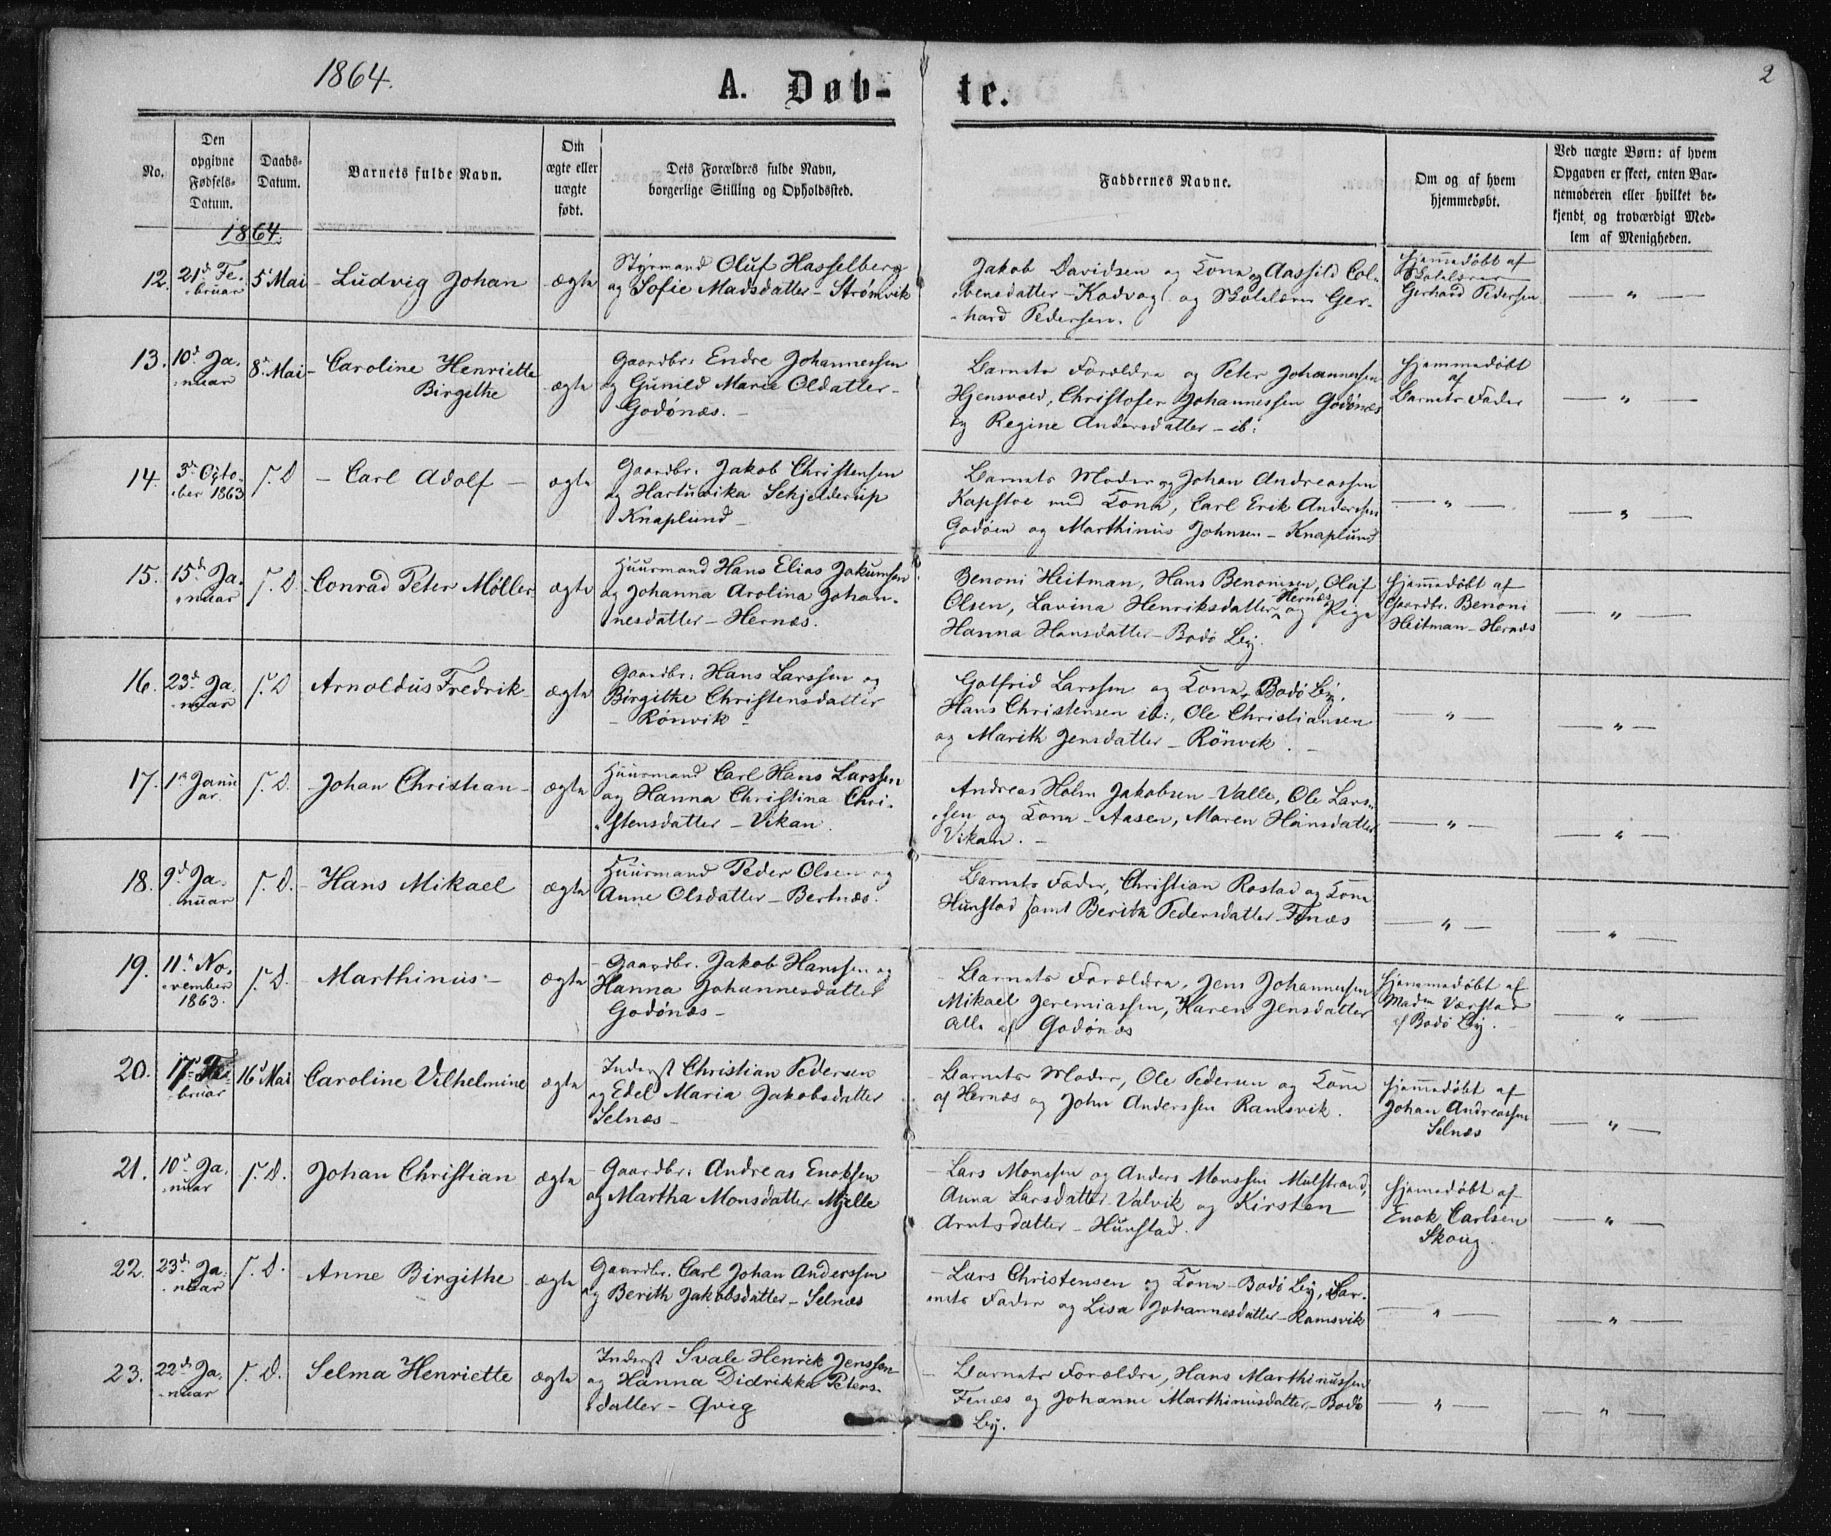 1864.
A. Døb-
te.
2
No.
Den
opgivne
Fødsels-
Datum.
Daabs-
Datum.
Barnets fulde Navn.
Om
ægte eller
uægte
født.
Dets Forældres fulde Navn,
borgerlige Stilling og Opholdssted.
Faddernes Navne.
Om og af hvem
hjemmedøbt.
Ved uægte Børn: af hvem
Opgaven er skeet, enten Bar-
nemoderen eller hvilket be-
kjendt og troværdigt Med-
lem af Menigheden.
1864.
12. 21de Fe-
bruar
5 Mai
Ludvig Johan
ægte
Styrmand Oluf Hasselberg
og Sofie Madsdatter - Strømvik
Jakob Davidsen og Kone og Aasild Col-
bensdatter - Kodvag og Skolelærer Ger-
hard Pedersen.
hjemmedøbt af
Skolelærer
Gerhard Pedersen
— " —
13. 10de Ja-
nuar
8de Mai
Caroline Henriette
Birgithe
ægte
Gaardbr: Endre Johannessen
og Gunild Marie Oldatter -
Godønæs. -
Barnets Forældre og Peter Johannessen
Hjensvold, Christofer Johannessen Godønæs
og Regine Andersdatter - ib:
hjemmedøbt
af
Barnets Fader
— " —
14. 3de Octo-
ber 1863
s. D
- Carl Adolf -
ægte
Gaardbr: Jakob Christensen
og Hartuvika Schjelderup
Knaplund -
Barnets Moder og Johan Andreassen
Kapstoe med Kone, Carl Erik Anderssen
Godøen og Marthinus Johnsen - Knaplund
— " —
— " —
15. 15de Ja-
nuar
s. D.
Conrad Peter Møller
ægte
Huusmand Hans Elias Jakumsen
og Johanna Arolina Johan-
nesdatter - Hernæs.
Benoni Heitman, Hans Benonisen, Oluf
Olsen, Lavina Henriksdatter Hernæs og Pige
Hanna Hansdatter - Bodø By.
hjemmedøbt af
Gaardbr. Benoni
Heitman - Hernæs
— " —
16. 23de Ja-
nuar
s. D
Arnoldus Fredrik -
ægte
Gaardbr: Hans Larssen og
Birgithe Christensdatter
- Rønvik -
Gotfrid Larssen og Kone, Bodø By,
Hans Christensen ib:, Ole Christiansen
og Marith Jensdatter - Rönvik. -
— " —
— " —
17. 1ste Janu
ar.
s. D.
Johan Christian -
ægte
Huusmand Carl Hans Larssen
og Hanna Christina Chri-
stensdatter - Vikan.
Andreas Holm Jakobsen - Valle, Ole Lars-
sen og Kone - Aasen, Maren Hansdatter
Vikan. -
— " —
— " —
18. 9de Ja-
nuar
s. D.
- Hans Mikael
ægte
Huusmand Peder Olsen og
Anne Olsdatter - Bertnæs.
Barnets Fader, Christian Rostad og Kone
Hunstad samt Berith Pedersdatter - Fenæs
— " —
— " —
19. 11te No-
vember
1863.
s. D.
Marthinus -
ægte
- Gaardbr. Jakob Hanssen og
Hanna Johannesdatter
Godønæs -
- Barnets Forældre, Jens Johannessen
Mikael Jeremiassen, Karen Jensdatter
Alle af Godønæs
hjemmedøbt af
Madm Værstad
af Bodø By.
— " —
20. 17de Fe-
bruar
16 Mai
Caroline Vilhelmine
ægte
Inderst Christian Pedersen
og Edel Maria Jakobsdatter
Selnæs -
Barnets Moder, Ole Pedersen og Kone
af Hernæs og John Anderssen Ramsvik.
hjemmedøbt af
Johan Andreassen
Selnæs
— " —
21. 10de Ja-
nuar
s. D.
Johan Christian
ægte
- Gaardbr: Andreas Enoksen
og Martha Monsdatter Mjelle
- Lars Monssen og Anders Monssen Mulstrand,
Anna Larsdatter Valvik og Kirsten
Arntsdatter - Hunstad.
hjemmedøbt af
Enok Carlsen
Skoug.
— " —
22. 23de Ja-
nuar
s. D.
Anne Birgithe
ægte
Gaardbr. Carl Johan Anderssen
og Berith Jakobsdatter - Selnæs
- Lars Christensen og Kone - Bodø By, Bar-
nets Fader og Lisa Johannesdatter - Ramsvik
— " —
— " —
23. 22de Ja-
nuar
s. D.
Selma Henriette
ægte
Inderst Svale Henrik Jenssen
og Hanna Didrikka Peters-
datter - Qvig
- Barnets Forældre, Hans Marthinussen
Fenæs og Johanne Marthinusdatter - Bodø
By.
— " —
— " —